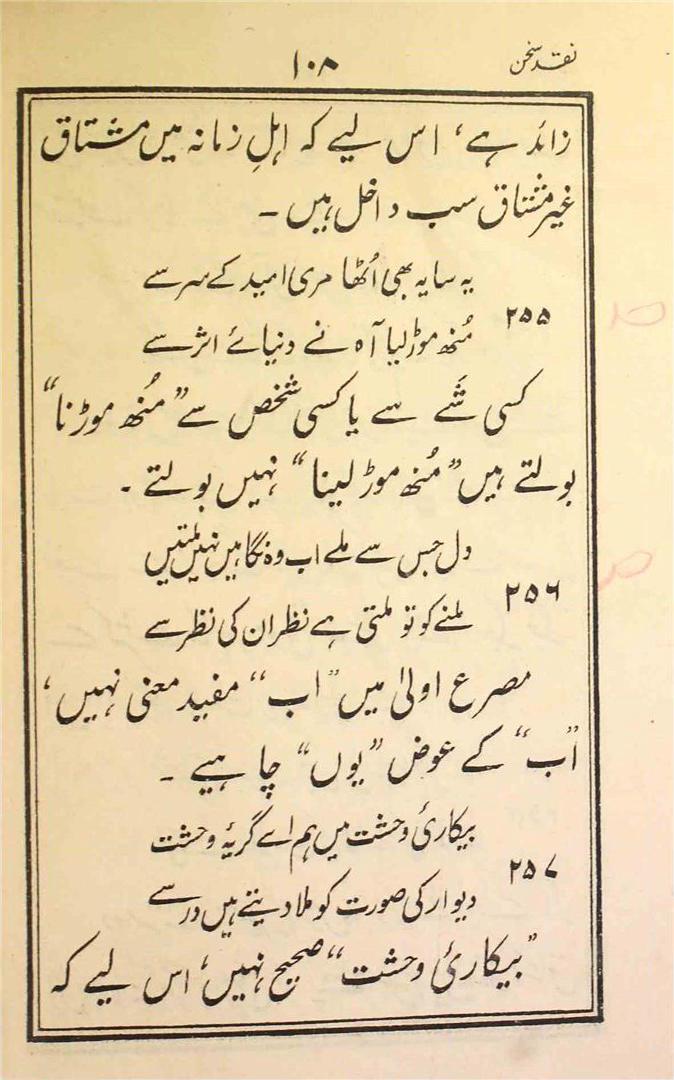 نقد سخن
۱۰۸
زائد ہے، اس لیے کہ اہلِ زمانہ میں مشتاق
غیر مشتاق سب داخل ہیں ۔
یہ سایہ بھی اُٹھا مری امید کے سر سے
۲۵۵
مُنھ موڑ لیا آہ نے دنیائے اثر سے
کسی شَے سے یا کسی شخص سے ”مُنھ موڑنا“
بولتے ہیں ”مُنھ موڑ لینا“ نہیں بولتے ۔
دل جس سے ملے اب وہ نگاہیں نہیں ملتیں
۲۵۶
ملنے کو تو ملتی ہے نظر ان کی نظر سے
مصرع اولیٰ میں ”اب“ مفید معنی نہیں،
”اب“ کے عوض ”یوں“ چاہیے ۔
بیکاریٔ وحشت میں ہم اے گریۂ وحشت
۲۵۷
دیوار کی صورت کو ملا دیتے ہیں در سے
”بیکاریٔ وحشت“ صحیح نہیں، اس لیے کہ